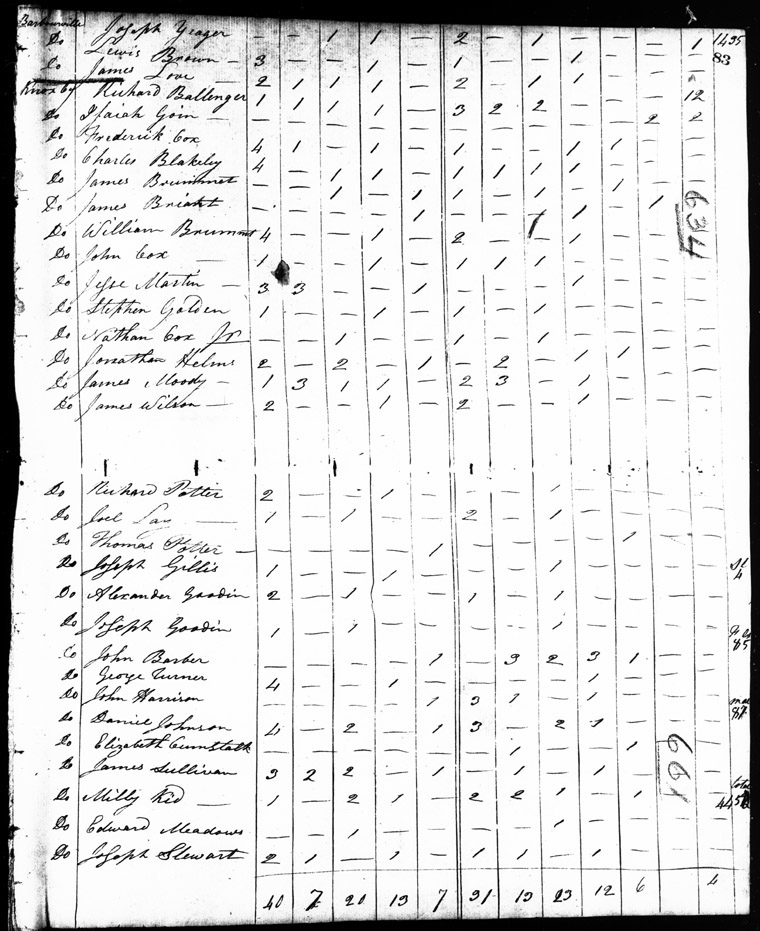 Barbourville
Do Joseph Yeager — — 1 1 — 2 — 1 — — — 1 1495
Do Lewis Brown — 3 — — 1 — 1 — — 1 — — — 83
Do James Love 2 1 1 1 — 2 — 1 1 — —
Knox Cy Richard Ballenger 1 1 1 1 — 12
Do Isaiah Goin — — — — — 3 2 2 — — 2 2
Do Frederick Cox 4 1 — 1 — 1 — — 1 1 — —
Do Charles Blakeley 4 — 1 1 — 1 1 1 1 — — —
Do James Brummet — — 1 — 1 1 — 1 — 1 — —
Do James Briant — — — — 1 — — — 1 — 1 —
Do William Brummet 4 — — 1 — 2 — 1 1 — — —
634
Do John Cox — 1 — — 1 — 1 1 1 — — — —
Do Jesse Martin — 3 3 — — 1 — — — 1 — — —
Do Stephen Golden 1 — — 1 — 1 — 1 — — — —
Do Nathan Cox Jr — — 1 — — 1 — 1 — — — —
Do Jonathan Helms 2 — 2 — 1 — 2 — 1 1 — —
Do James Moody — 1 3 1 1 — 2 3 — 1 — — —
Do James Wilson — 2 — — 1 — 2 — — 1 — — —
Do Richard Potter 2 — — 1 — — — 1 — — — —
Do Joel Lay 1 — 1 — — 2 — 1 — — — —
Do Thomas Potter — — — — — 1 — — — — 1 — —
Do Joseph Gillis 1 — — 1 — — — 1 — — — —
4
Do Alexander Goodin 2 — 1 — — 1 — 1 — — — —
Do Joseph Goodin 1 — 1 — — — — 1 — — — —
85
Do John Barber — — — — 1 — 3 2 3 1 — —
Do George Turner 4 — — 1 — — — — 1 — — —
Do John Harrison — — — — 1 3 1 — 1 — — —
Do Daniel Johnson 4 — 2 — 1 3 — 2 1 — — —
Do Elizabeth Cumstalk — — — — — — 1 — — 1 — —
661
Do James Sullivan 3 2 2 — 1 — 1 — 1 — — —
total
Do Milly Kid — 1 — 2 1 — 2 2 1 — 1 — —
Do Edward Meadows — — 1 — — — — 1 — — — —
Do Joseph Stewart 2 1 — 1 — 1 1 — 1 — — —
40 7 20 19 7 31 19 23 12 6 4